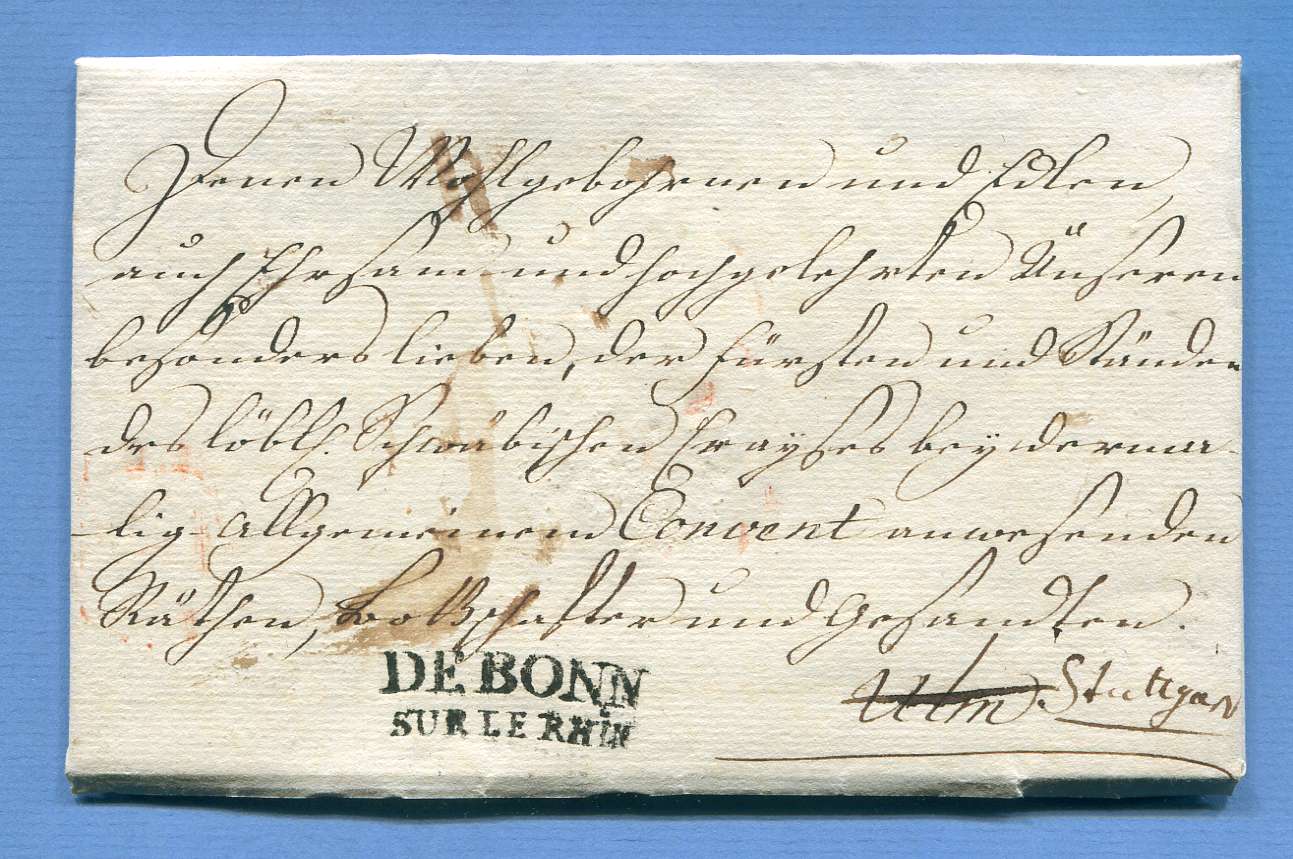 Denen Wohlgebohrnen und Edlen,
auch Ehrsam und hochgelehrten Unseren
besonders lieben, der Fürsten und Ständen
des löbl. Schwäbischen Crayses bey derma-
lig Allgemeinen Convent anwesenden
Räthen, Bottschafter und Gesandten.
DE BONN
SUR LE RHIN
Ulm. Stuttgar